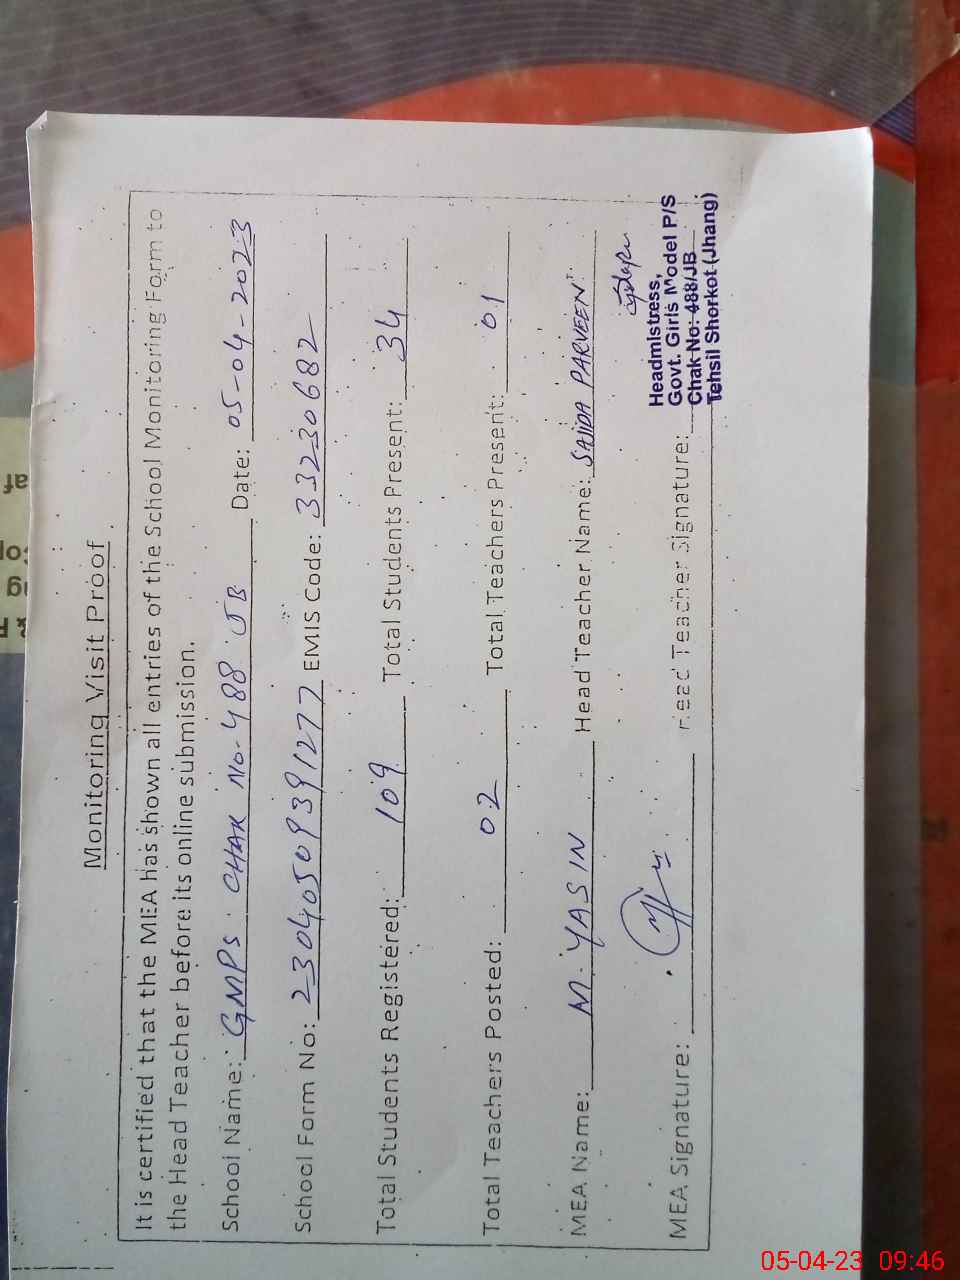 Monitoring Visit Proof
It is certified that the MEA has shown all entries of the School Monitoring Form to
the Head Teacher before its online submission.
School Name: GMPS CHAK No. 488 JB Date: 05-04-2023
School Form No: 23040509391277 EMIS Code: 33230682
Total Students Registered: 109 Total Students Present: 34
Total Teachers Posted: 02 Total Teachers Present: 01
MEA Name: M. YASIN Head Teacher Name: SAJIDA PARVEEN
MEA Signature: Head Teacher Signature:
Headmistress,
Govt. Girls Model P/S
Chak No: 488/JB
Tehsil Shorkot (Jhang)
05-04-23 09:46